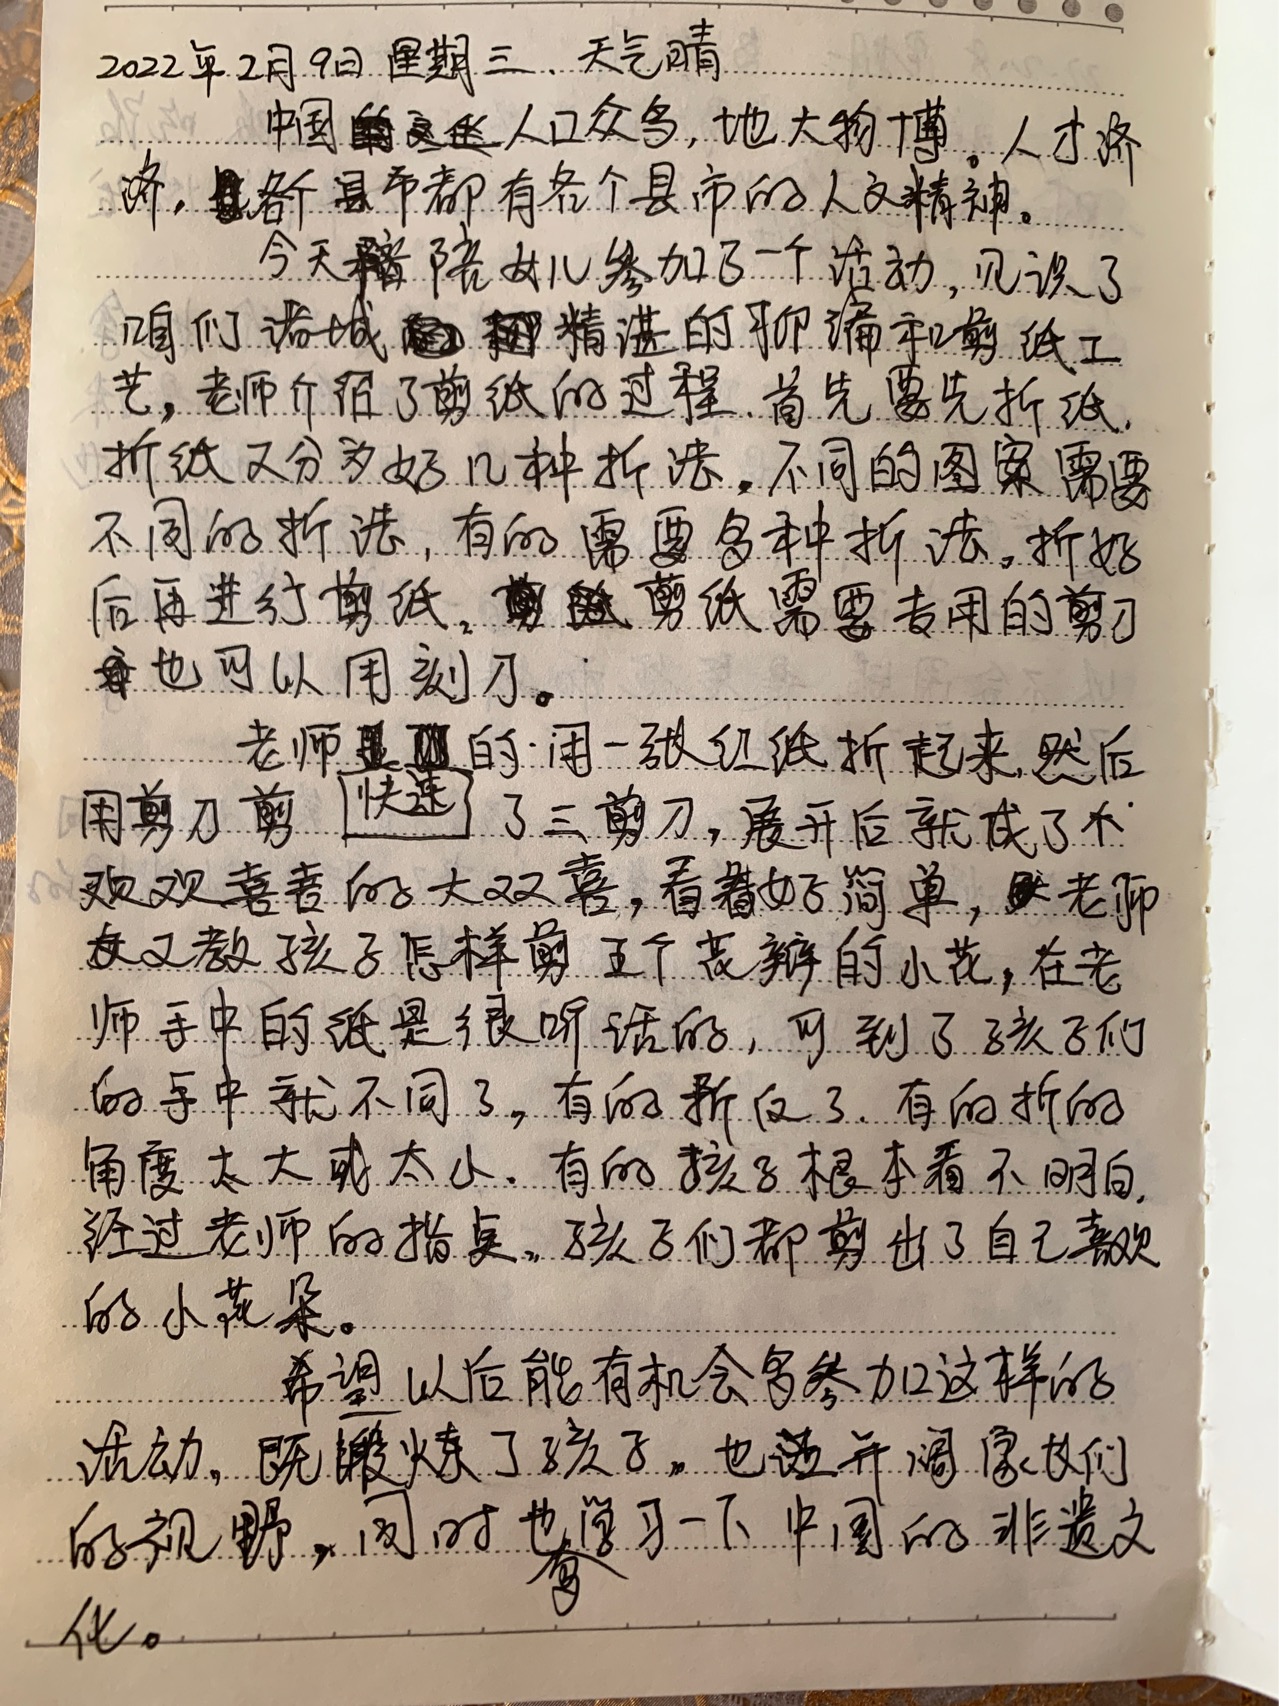 2022年2月9日 星期三、天气晴
中国人口众多，地大物博。人才济
济，各个县市都有各个县市的人文精神。
今天陪女儿参加了一个活动，见识了
咱们诸城精湛的聊斋和剪纸工
艺，老师介绍了剪纸的过程、首先要先折纸，
折纸又分为好几种折法。不同的图案需要
不同的折法，有的需要多种折法。折好
后再进行剪纸。剪纸需要专用的剪刀
也可以用刻刀。
老师的用一张红纸折起来，然后
用剪刀剪快速了三剪刀，展开后就成了个
欢欢喜喜的大双喜，看着好简单，老师
又教孩子怎样剪五个花瓣的小花，在老
师手中的纸是很听话的，可到了孩子们
的手中就不同了，有的折反了．有的折的
角度太大或太小．有的孩子根本看不明白，
经过老师的指点。孩子们都剪出了自己喜欢
的小花朵。
希望以后能有机会多参加这样的
活动，既锻炼了孩子。也开阔家长们
的视野，同时也多学习一下中国的非遗文
化。